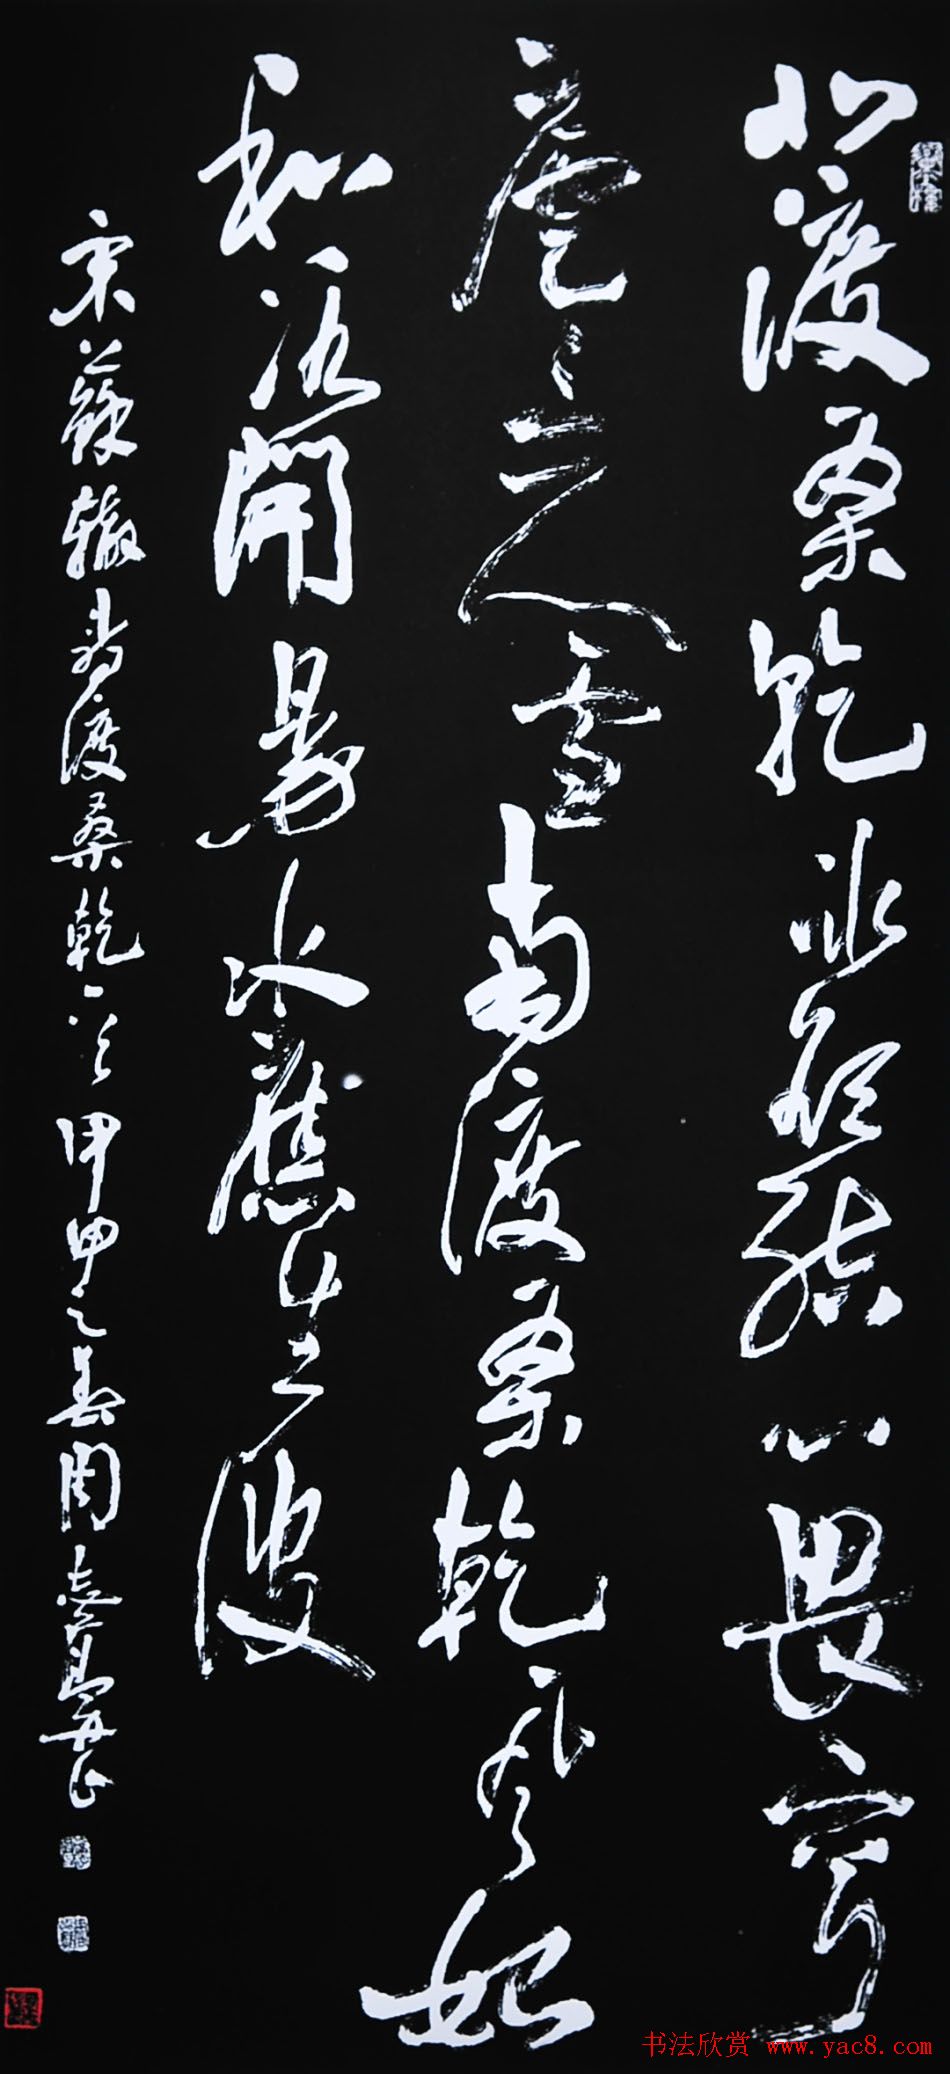 北渡桑乾冰欲結心畏穹
廬三尺雪南渡桑乾風始
和冰開易水應生波
宋蘇轍詩渡桑乾 甲申之春周志高
书法欣赏 www.yac8.com